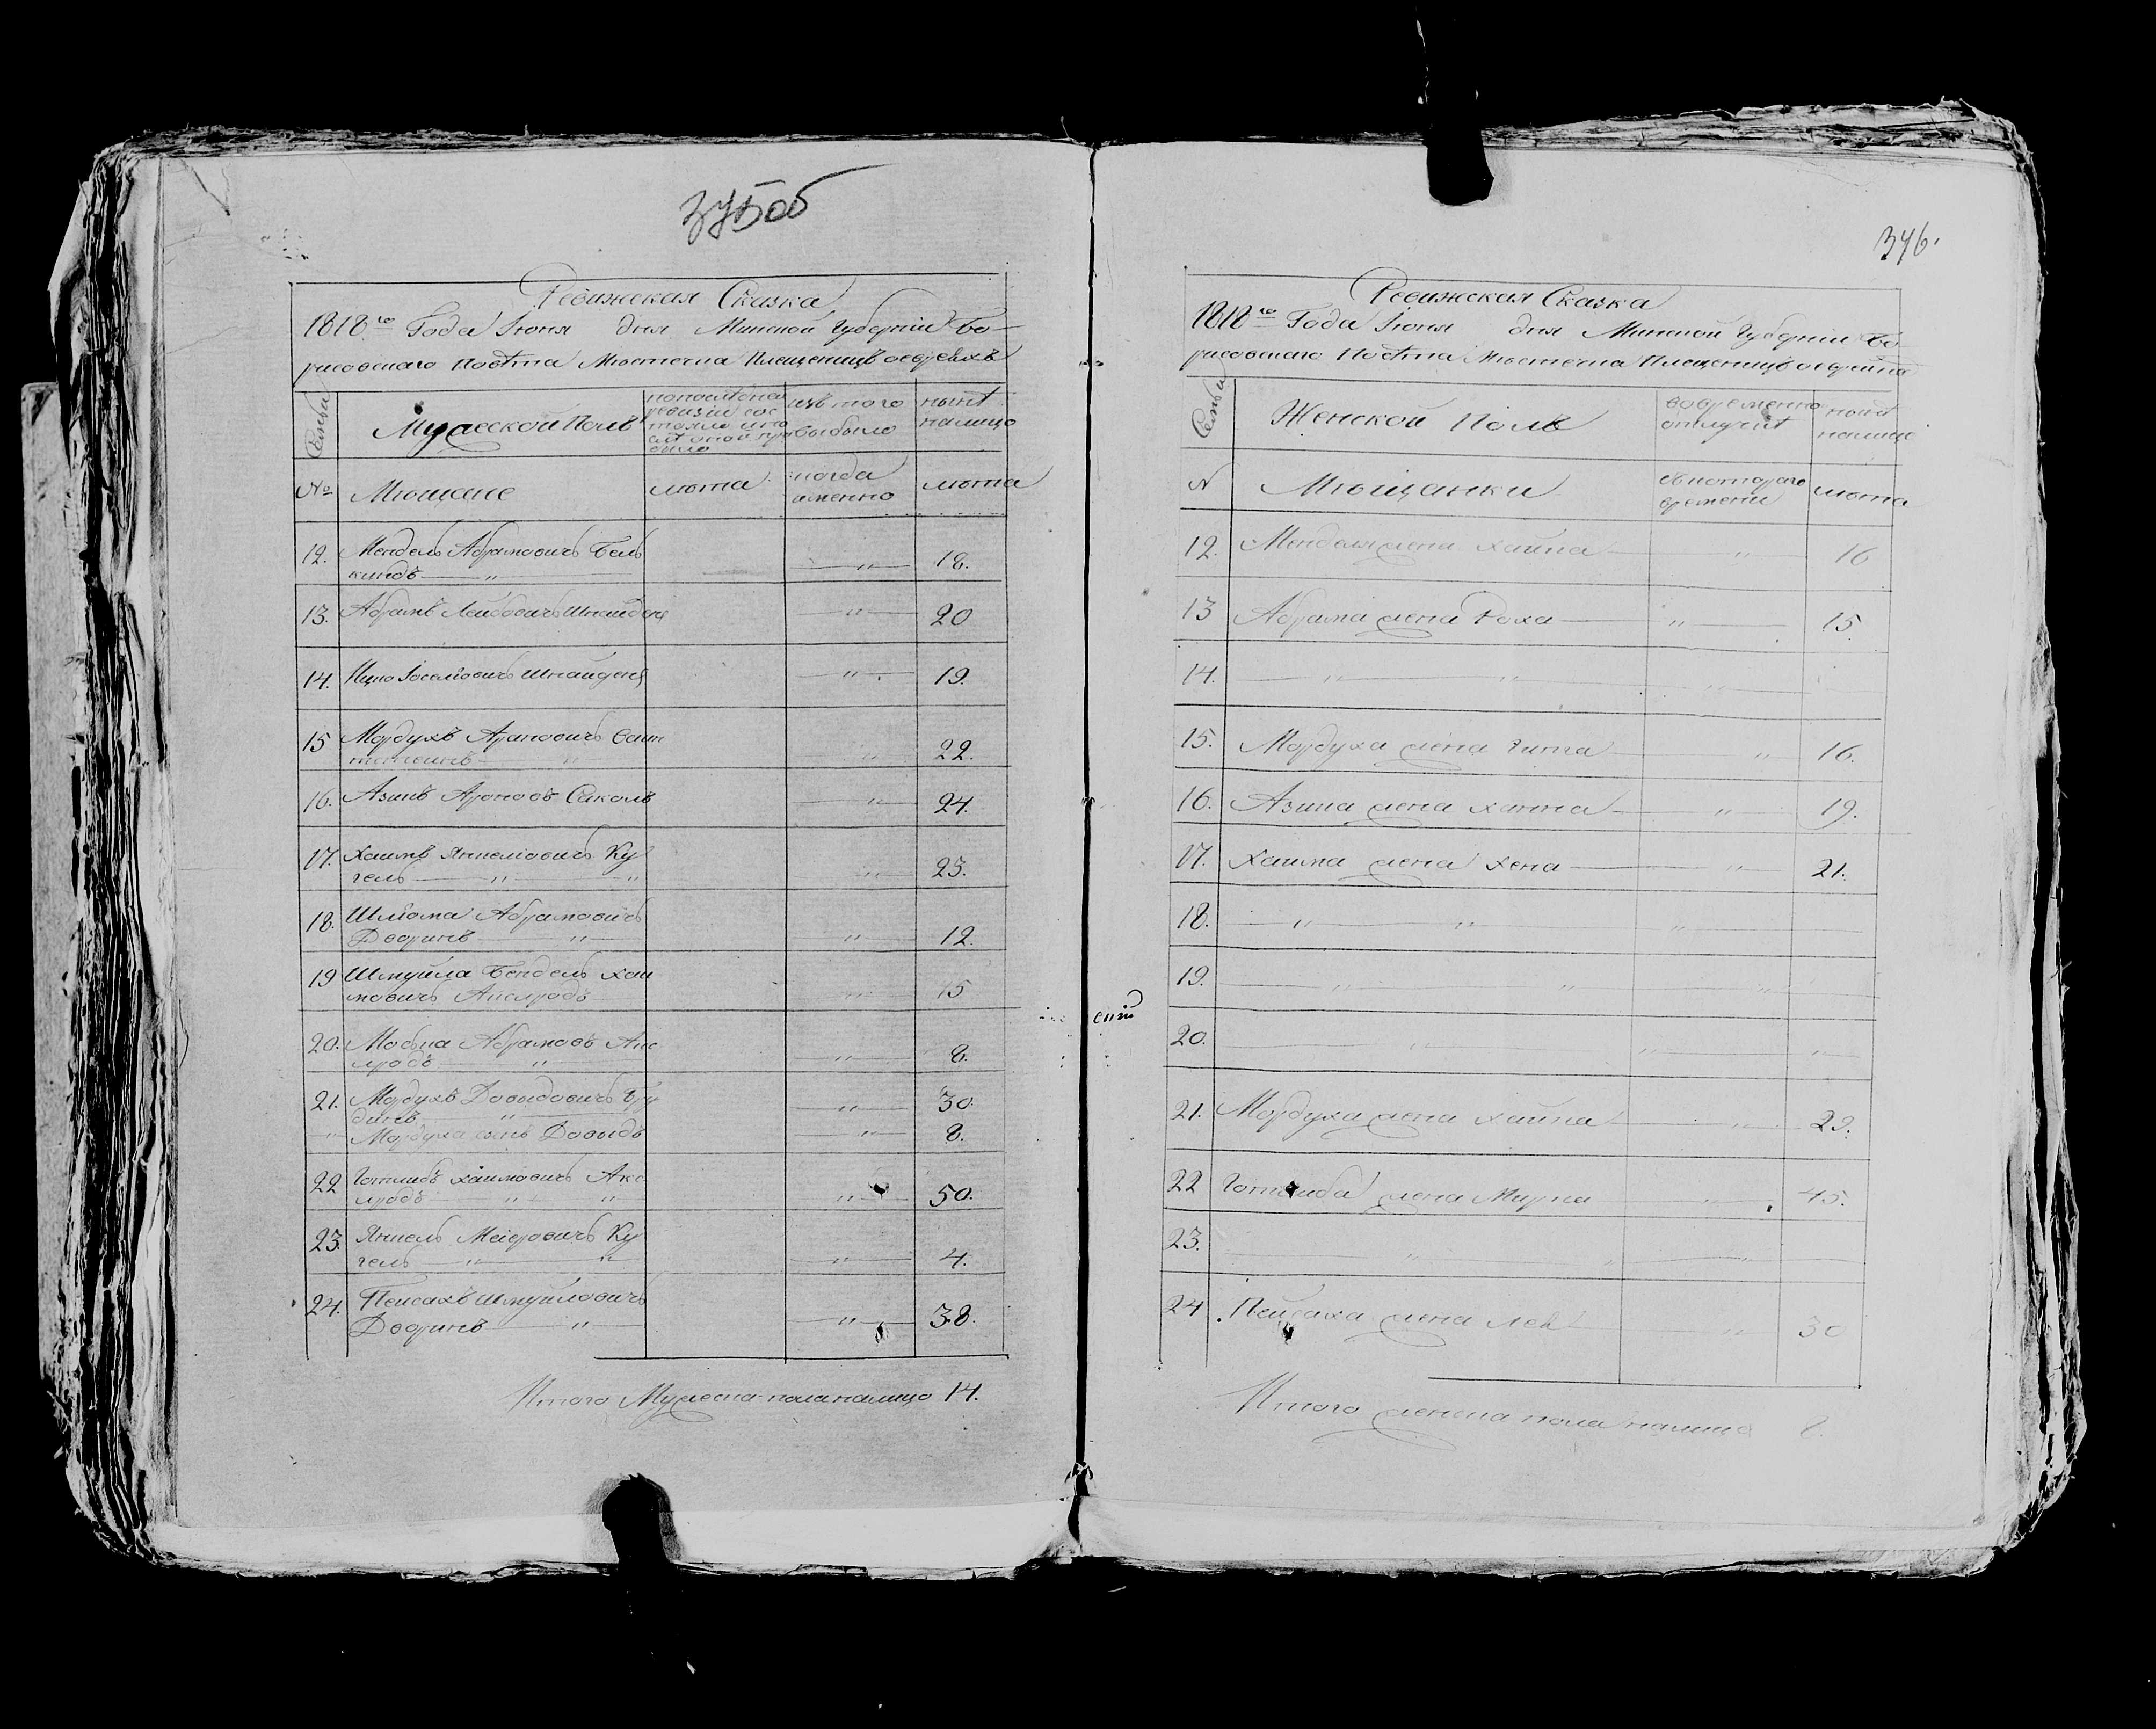 346.
Ревижская Сказка
1818го Года Іюня дня Минской Губерніи Бо-
рисовскаго Повѣта Мѣстечка Плещеницъ овѣревхъ
Семьи
Мужеской Полъ
изъ того
выбыло
нынѣ
налицо
№
Мѣщане
лѣта
когда
именно
лѣта
12. Мендель Абрамовичъ Бель
киндъ — " — " — 18.
13. Абрамъ Лейбовичъ Шнейдеръ — " — 20
14. Ицко Іоселіовичъ Шнайдеръ — " — 19.
15 Мордухъ Ароновичъ
— " — 22.
16. Азикъ Ароновъ Саколъ — " — 24.
17. Хаимъ Янкеліовичъ Ку
гель — " — " — 23.
18. Шліома Абрамовичъ
Дворинъ — " — " — 12.
19 Шмуйла Бендель Хаи
мовичъ Аксельродъ — 15
20. Мовша Абрамовъ Акс
лродъ — " — " — 8.
21. Мордухъ Довыдовичъ
динъ — " — " — 30.
" Мордуха сынъ Довыдъ — " — 8.
22 Готлибъ Хаимовичъ Акс
лродъ " " — " — 50.
23. Янкель Меіеровичъ Ку
гель — " — " — " — 4.
24. Пейсахъ Шмуйловичъ
Дворинъ — " — " — 38.
Итого Мужеска пола налицо 14.
Ревижская Сказка
1818го Года Іюня дня Минской Губерніи Бо-
рисовскаго Повѣта Мѣстечка Плещеницъ
Семьи
Женской Полъ
во временно
отлучкѣ
нынѣ
налицо
№
Мѣщанки
съ котораго
времени
лѣта
12. Менделя жена Хайка — " — 16
13 Абрама жена Роха — " — 15.
14. — " — " — " —
15. Мордуха жена Гитка — " — 16.
16. Азика жена Ханна — " — 19.
17. Хаима жена Хена — " — 21.
18. — " — " — " —
19. — " — " — " —
20. — " — " — " —
21. Мордуха жена Хайка — " — 29.
22 Готлиба жена Мирка — " — 45.
23. — " — " — " —
24 Пейсаха жена — " — 30
Итого женска пола налицо 8.